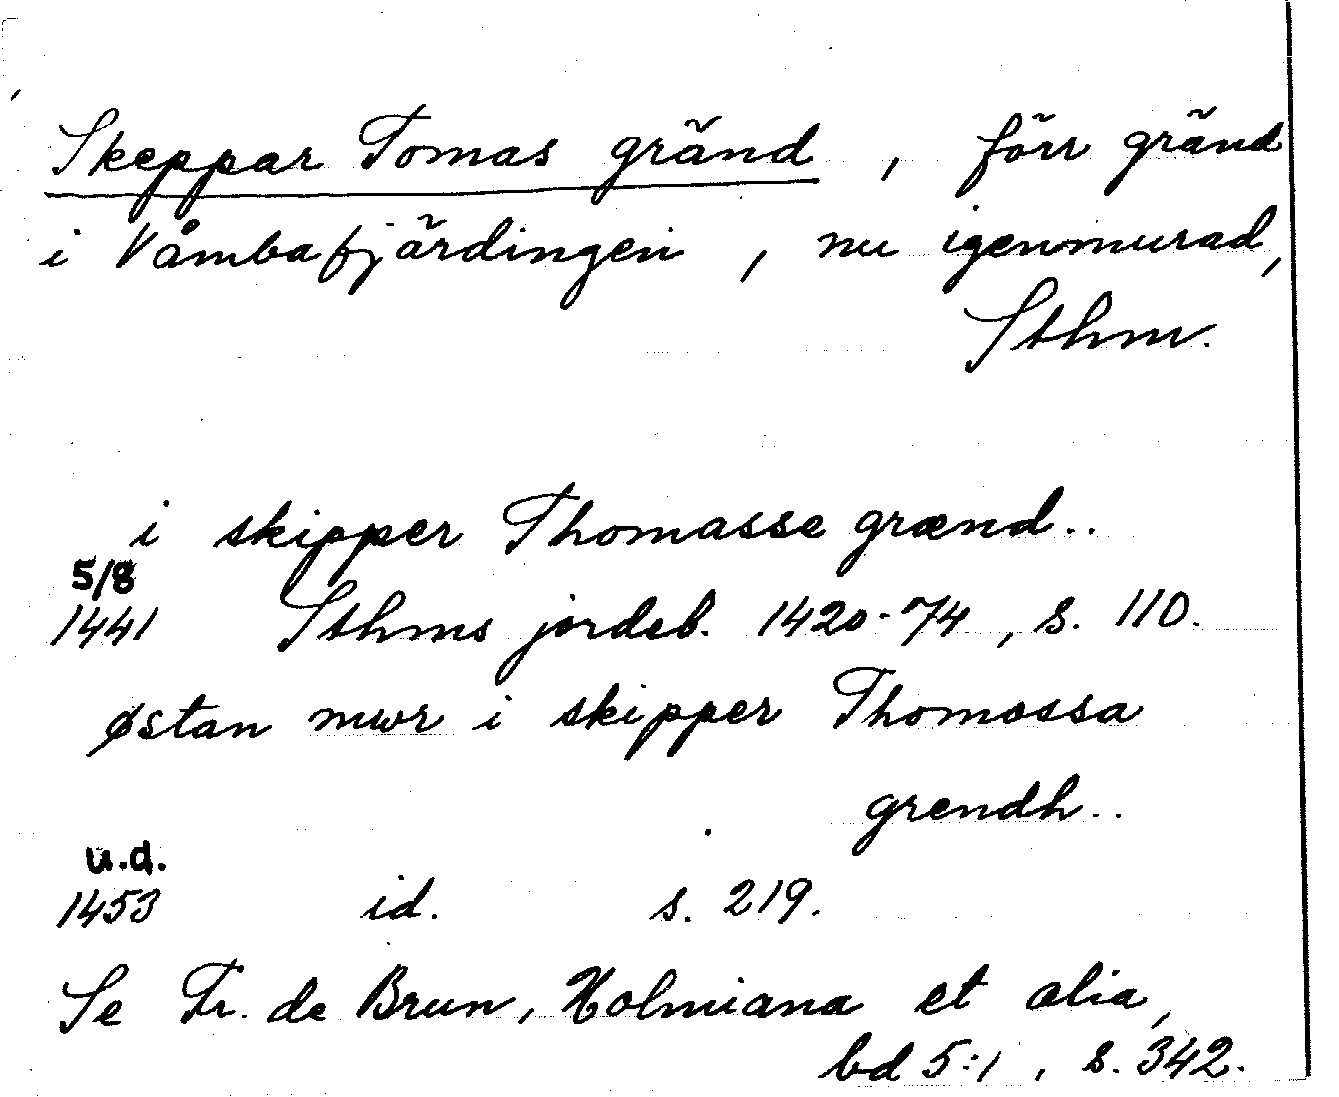 Skeppar Tomas gränd, förr gränd
i Våmbafjärdingen, nu igenmurad,
Sthm.
i skipper Thomasse grænd..
5/8
1441 Sthms jordeb. 1420-74, s. 110.
østan mwr i skipper Thomassa
grendh..
u.d.
1453 id. s. 219.
Se Fr. de Brun, Holmiana et alia,
bd 5:1, s. 342.